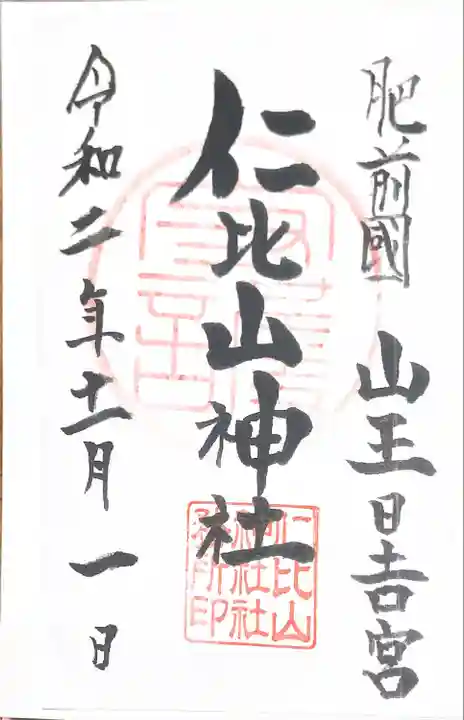 肥前國 山王日吉宮
仁比山神社
仁比山
神社社
務所印
令和二年十一月一日